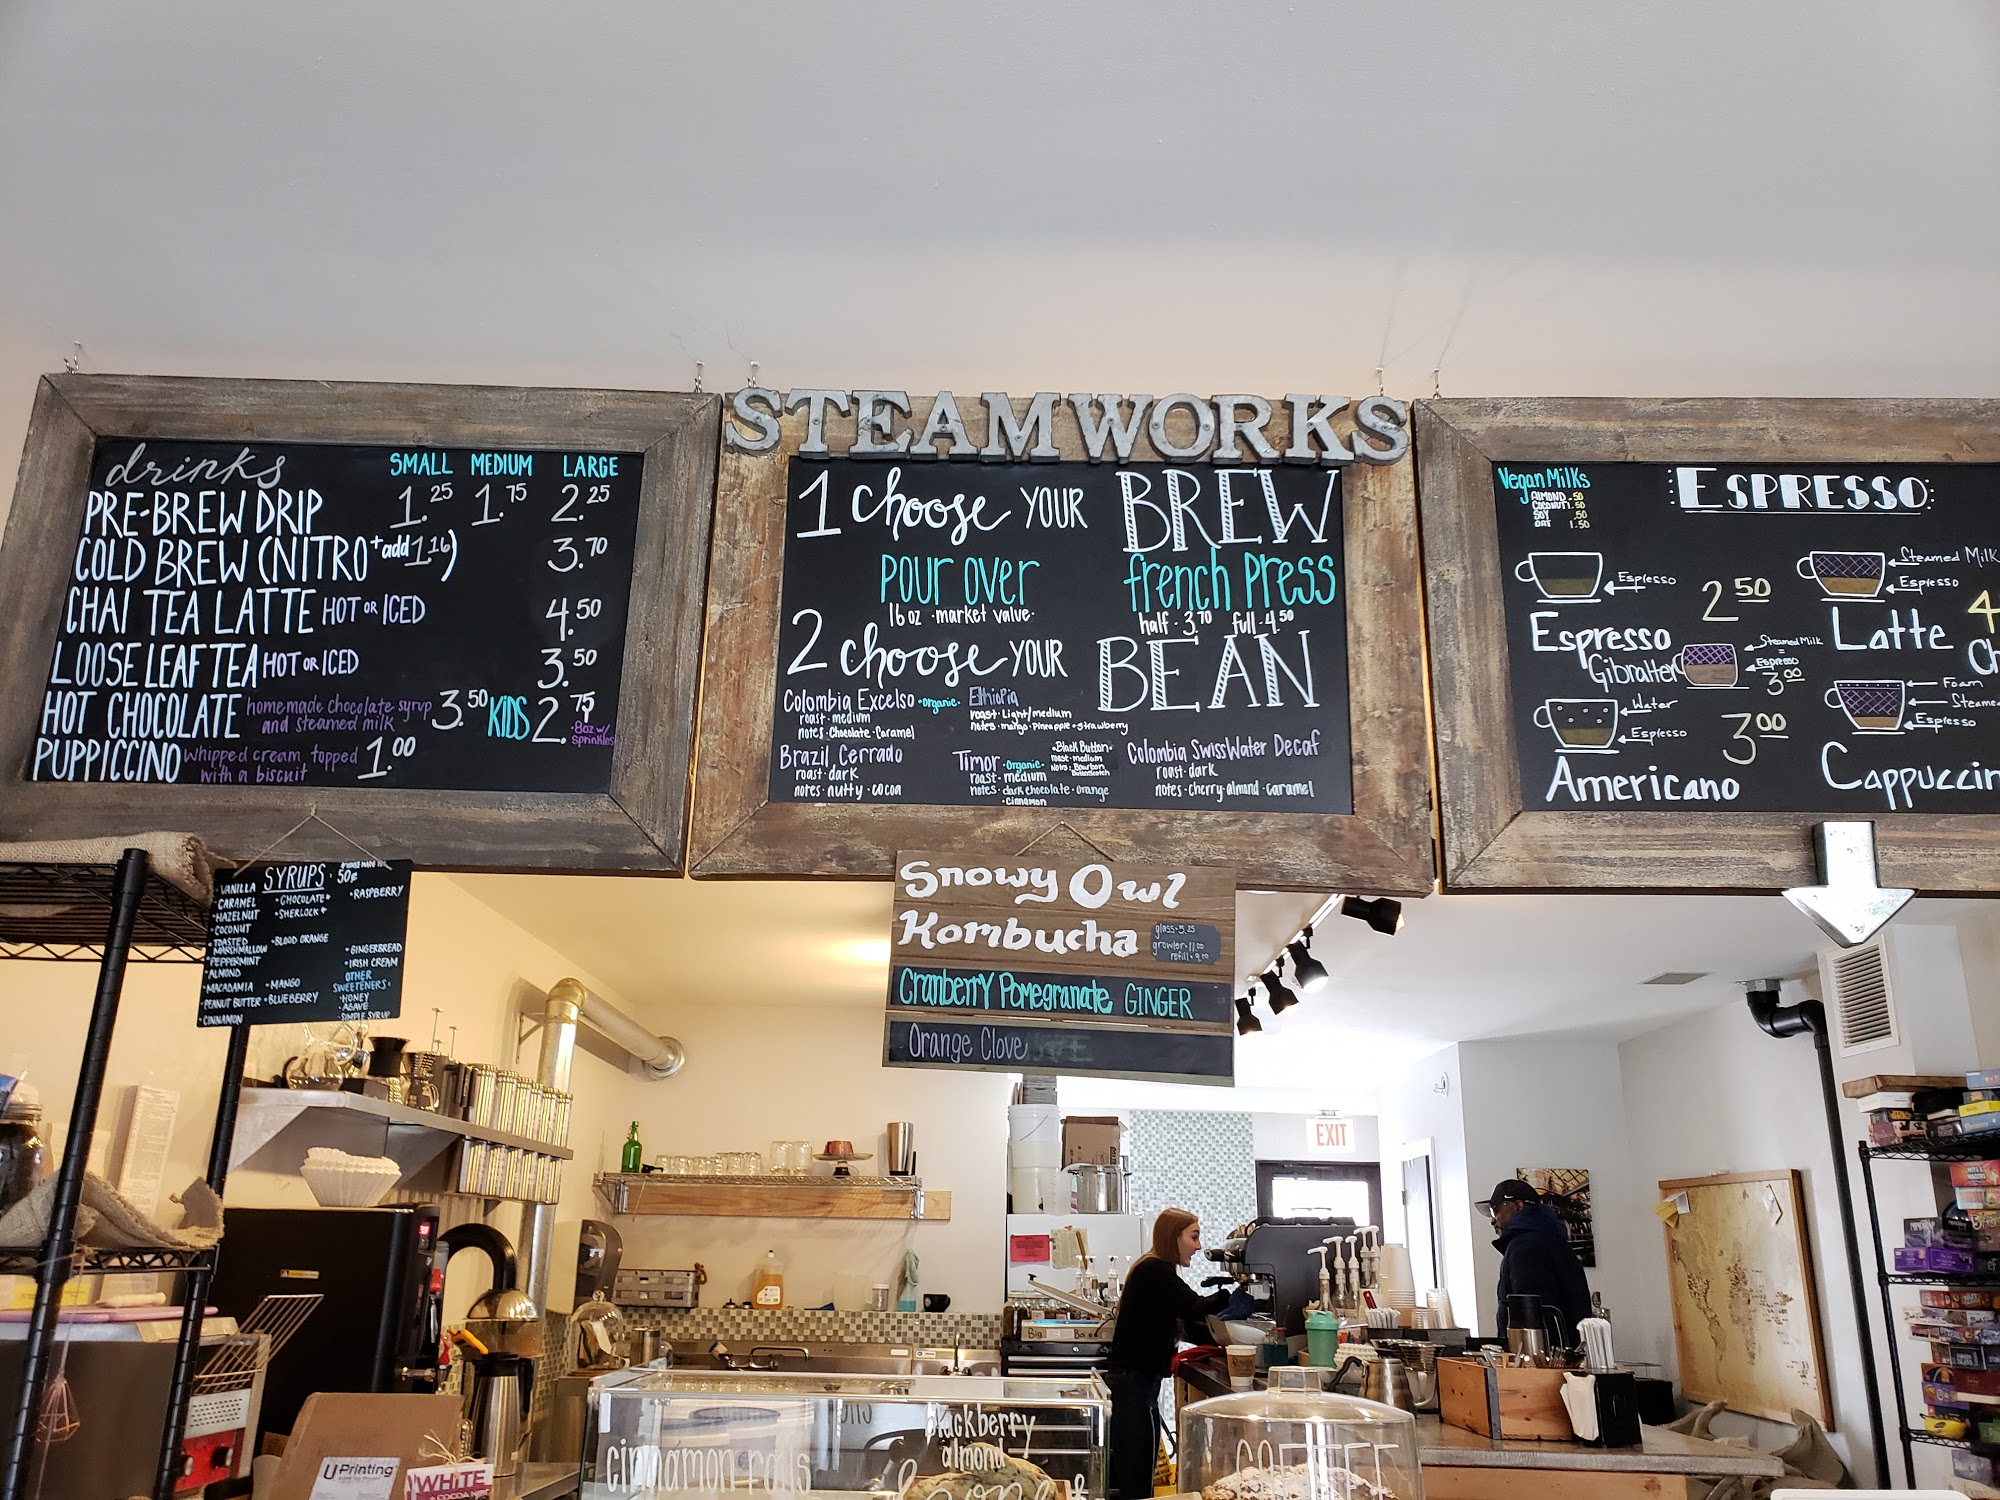 drinks SMALL MEDIUM LARGE
PRE-BREW DRIP 1.25 1.75 2.25
COLD BREW (NITRO +add 1.16) 3.70
CHAI TEA LATTE HOT OR ICED 4.50
LOOSE LEAF TEA HOT OR ICED 3.50
HOT CHOCOLATE homemade chocolate syrup and steamed milk 3.50 KIDS 2.75 8oz w/ sprinkles
PUPPICCINO whipped cream topped with a biscuit 1.00
STEAMWORKS
1 choose YOUR BREW
POUR OVER french press
16 oz · market value · half · 3.70 full · 4.50
2 choose YOUR BEAN
Colombia Excelso · Organic ·
roast · medium
notes · Chocolate · Caramel
Ethiopia
roast · Light/medium
notes · mango · Pineapple · Strawberry
Brazil Cerrado
roast · dark
notes · nutty · cocoa
Timor · Organic ·
roast · medium
notes · dark chocolate · orange
· cinnamon
· Black Button ·
roast · medium
notes · Bourbon
Butterscotch
Colombia SwissWater Decaf
roast · dark
notes · cherry · almond · caramel
Vegan Milks
ALMOND · .50
COCONUT 1.50
SOY .50
OAT 1.50
ESPRESSO
Espresso
2.50
Espresso
Steamed Milk
Espresso
Latte
4
Ch
Gibralter
Steamed Milk
=
Espresso
3.00
Water
Espresso
3.00
Americano
Foam
Steame
Espresso
Cappuccin
SYRUPS · 50¢
· VANILLA
· CARAMEL
· HAZELNUT
· COCONUT
· TOASTED
MARSHMALLOW
· PEPPERMINT
· ALMOND
· MACADAMIA
· PEANUT BUTTER
· CINNAMON
· CHOCOLATE*
· SHERLOCK*
· BLOOD ORANGE
· MANGO
· BLUEBERRY
· RASPBERRY
· GINGERBREAD
· IRISH CREAM
OTHER
SWEETENERS:
· HONEY
· AGAVE
· SIMPLE SYRUP
Snowy Owl
Kombucha
glass · 5.25
growler · 11.00
refill · 9.00
Cranberry Pomegranate GINGER
Orange Clove
EXIT
Big Boi
cinnamon rolls
blackberry
almond
COFFEE
UPrinting
WHITE